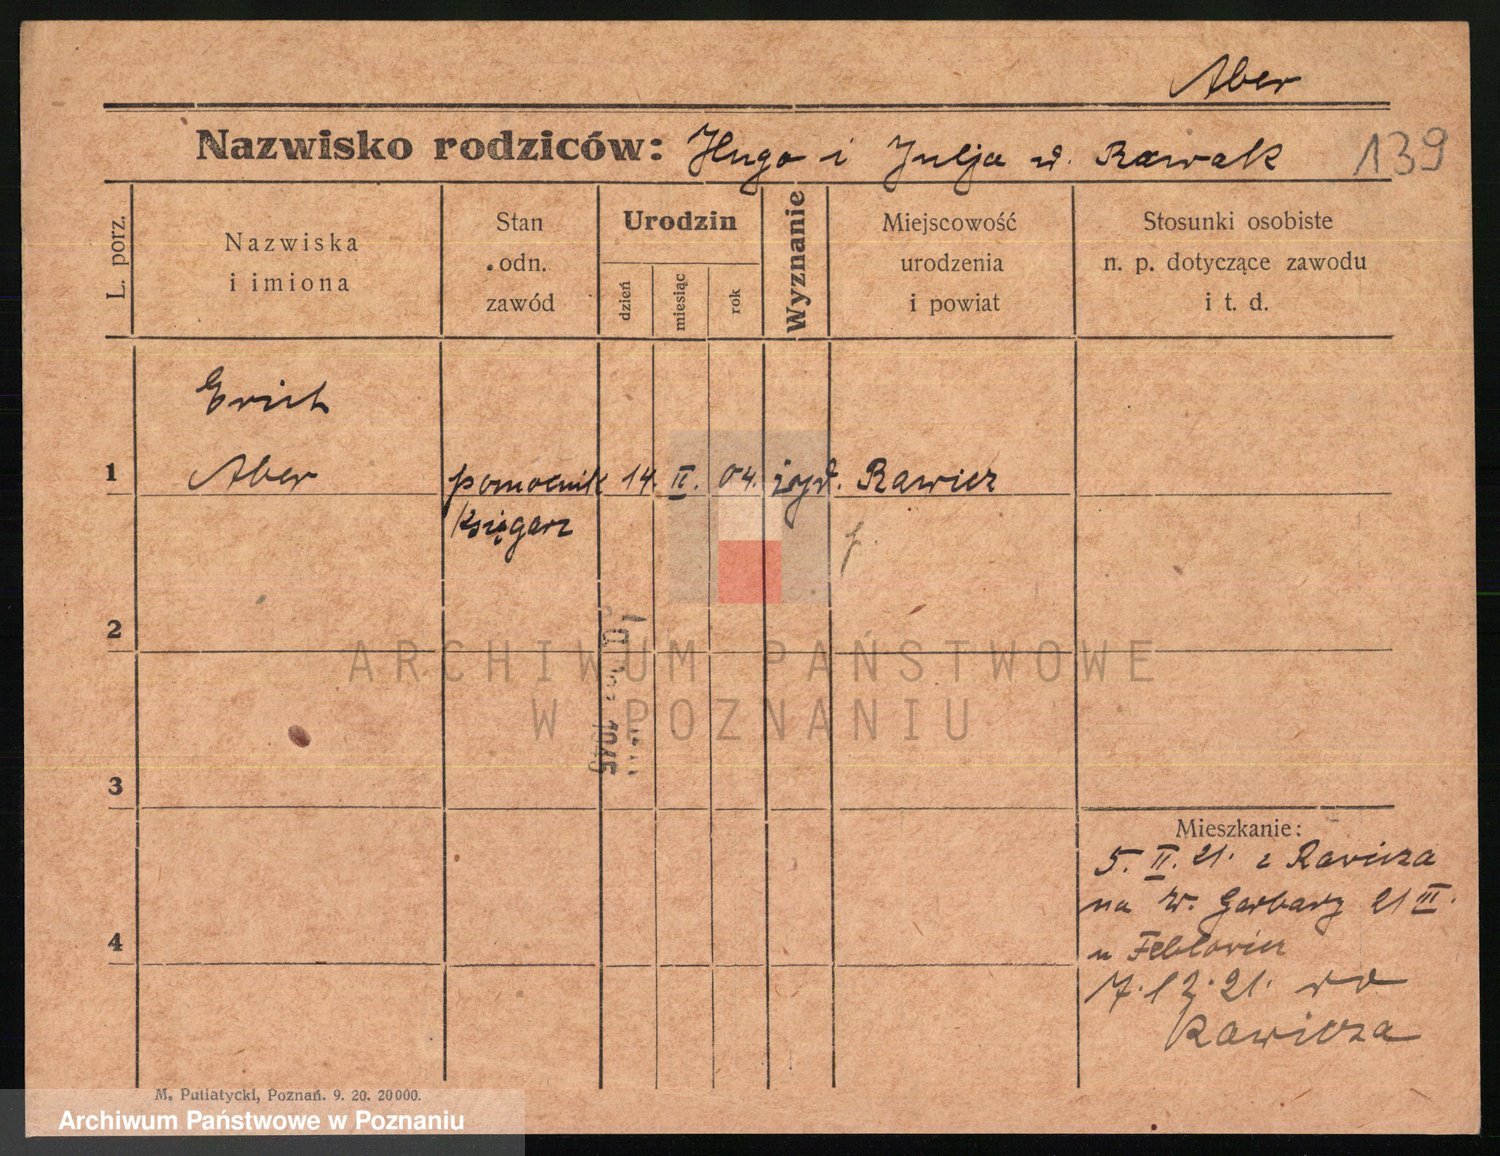 Aber
Nazwisko rodziców: Hugo i Julja d. Rawak 139
L. porz.
Nazwiska
i imiona
Stan
odn.
zawód
Urodzin
dzień
miesiąc
rok
Wyznanie
Miejscowość
urodzenia
i powiat
Stosunki osobiste
n. p. dotyczące zawodu
i t. d.
Erich
1 Aber pomocnik 14. II. 04. żyd. Rawicz
księgarz
2
ARCHIWUM PAŃSTWOWE
W POZNANIU
3
Mieszkanie:
5. II. 21. z Rawicza
na W. Garbary 21 III.
4
u
7.12.21. do
Rawicza
M. Putiatycki, Poznań. 9. 20. 20000.
Archiwum Państwowe w Poznaniu